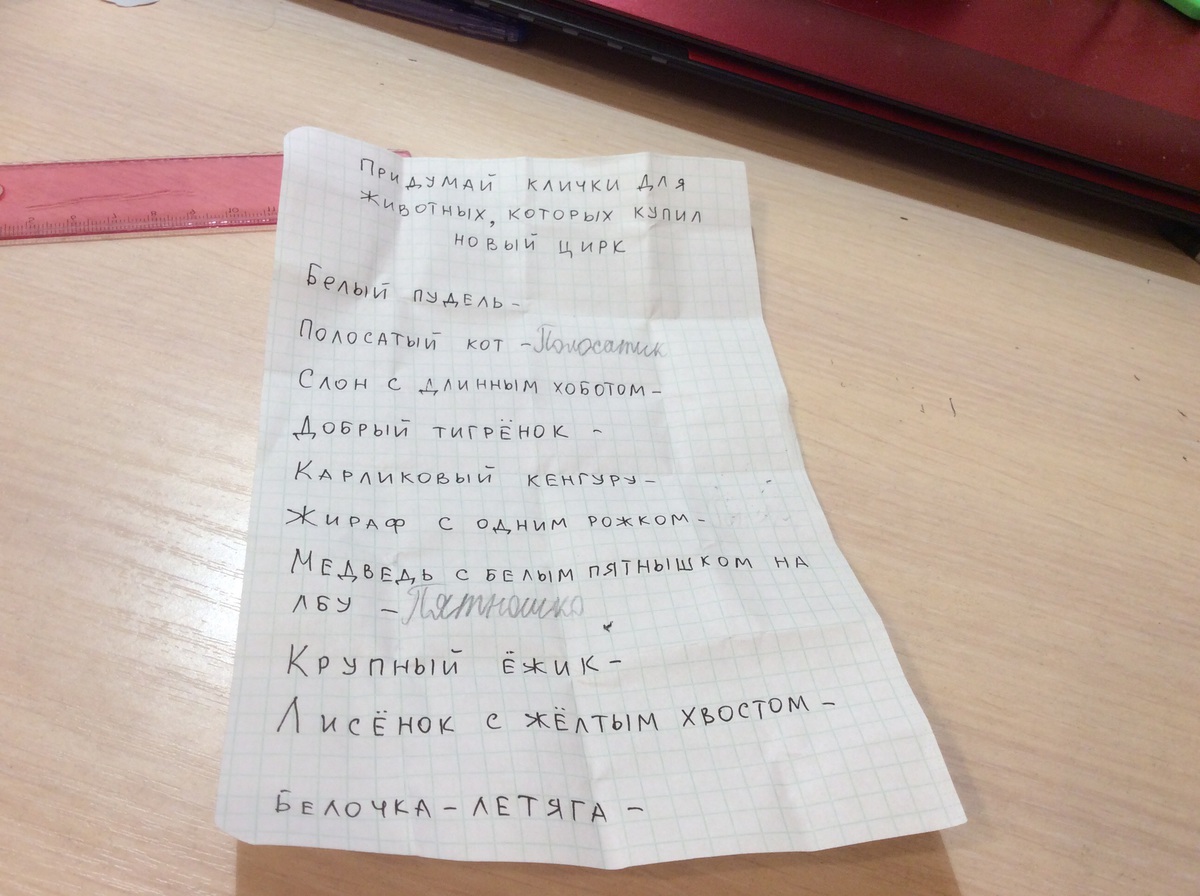 Придумай клички для
животных, которых купил
новый цирк
Белый пудель-
Полосатый кот -Полосатик
Слон с длинным хоботом-
Добрый тигрёнок -
Карликовый кенгуру-
Жираф с одним рожком-
Медведь с белым пятнышком на
лбу -Пятношко
Крупный ёжик-
Лисёнок с жёлтым хвостом-
Белочка-летяга-